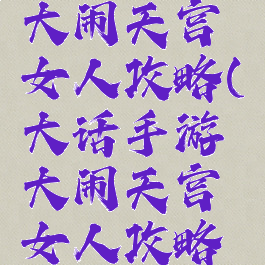 大闹天宫
女人攻略(
大话手游
大闹天宫
女人攻略